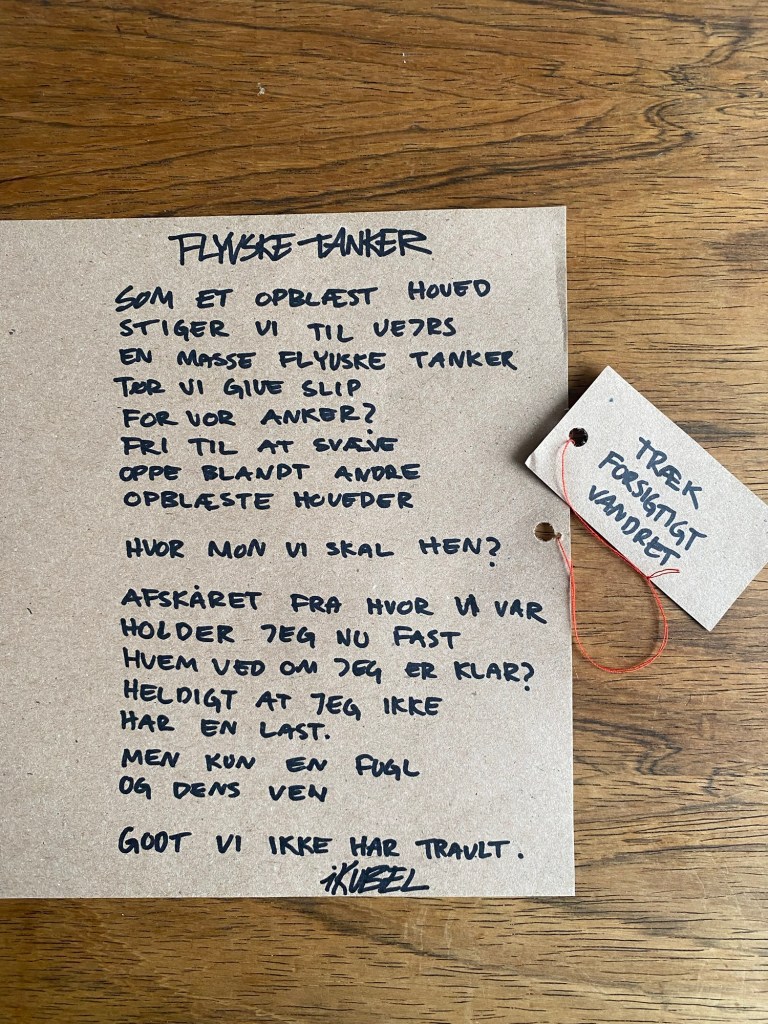 FLYVSKE TANKER
SOM ET OPBLÆST HOVED
STIGER VI TIL VEJRS
EN MASSE FLYVSKE TANKER
TØR VI GIVE SLIP
FOR VOR ANKER?
FRI TIL AT SVÆVE
OPPE BLANDT ANDRE
OPBLÆSTE HOVEDER
HVOR MON VI SKAL HEN?
AFSKÅRET FRA HVOR VI VAR
HOLDER JEG NU FAST
HVEM VED OM JEG ER KLAR?
HELDIGT AT JEG IKKE
HAR EN LAST.
MEN KUN EN FUGL
OG DENS VEN
GODT VI IKKE HAR TRAVLT.
iKUBEL
TRÆK
FORSIGTIGT
VANDRET